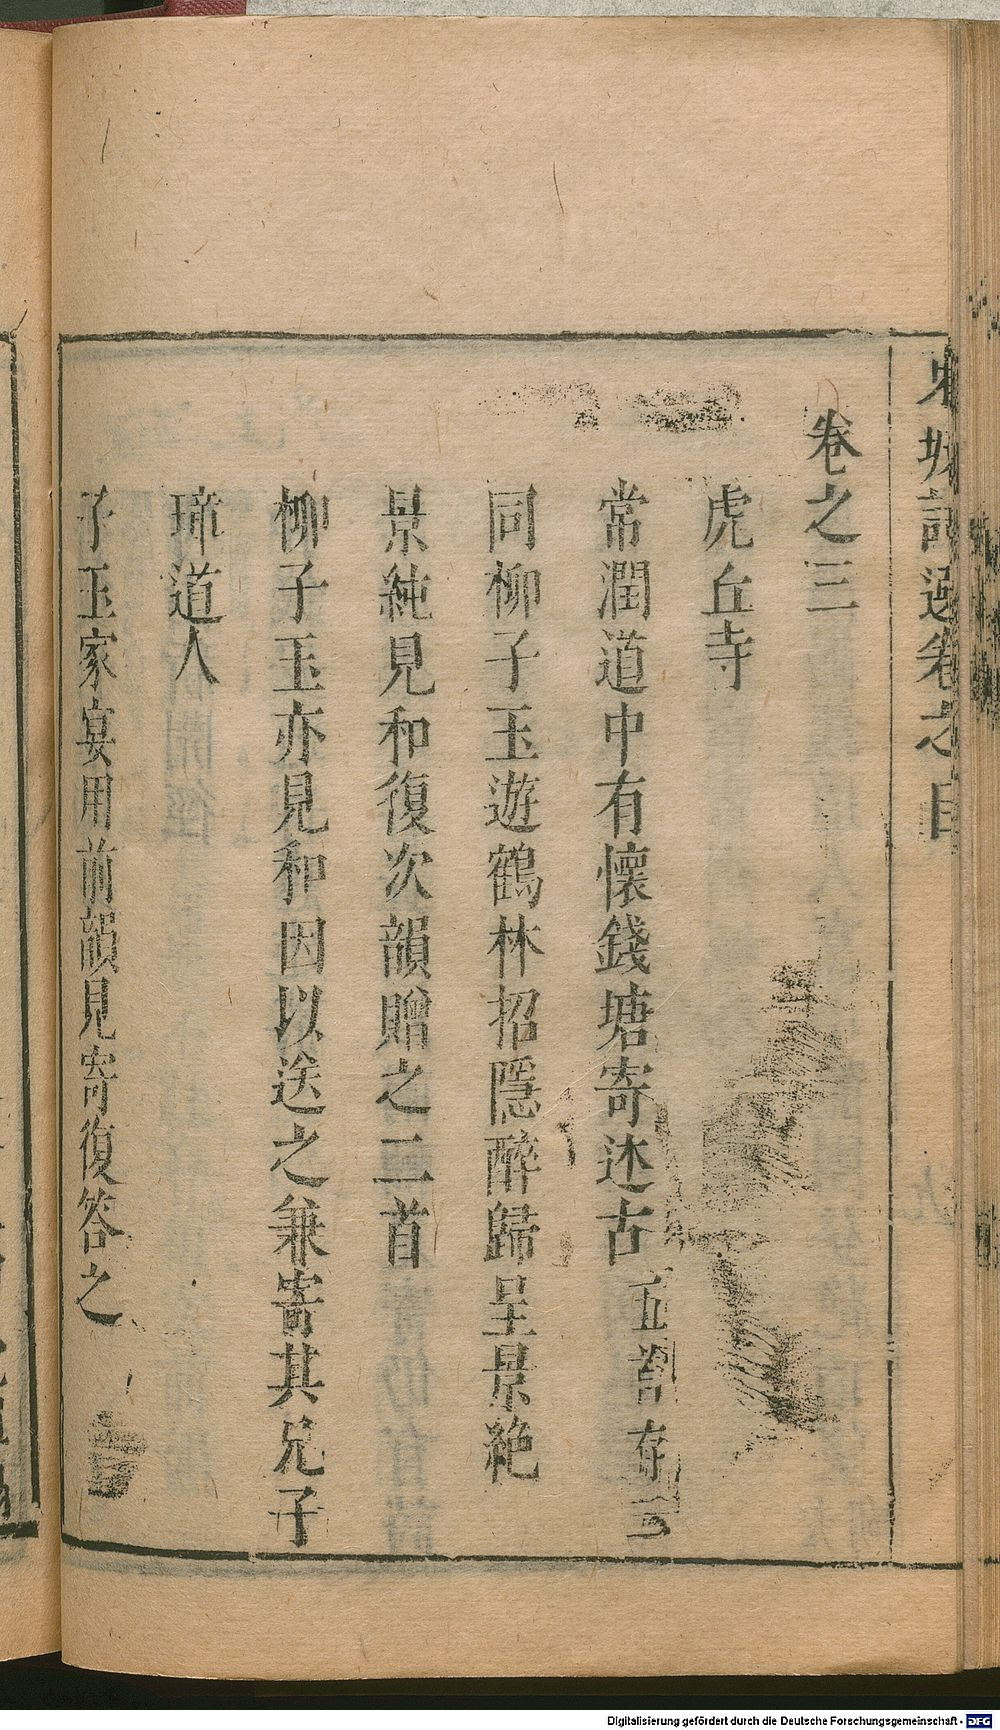 東坡詩選卷之目
卷之三
虎丘寺
常潤道中有懷錢塘寄述古五首存三
同柳子玉遊鶴林招隱醉歸呈景純
景純見和復次韻贈之二首
柳子玉亦見和因以送之兼寄其兄子
璋道人
子玉家宴用前韻見寄復答之
Digitalisierung gefördert durch die Deutsche Forschungsgemeinschaft - DFG